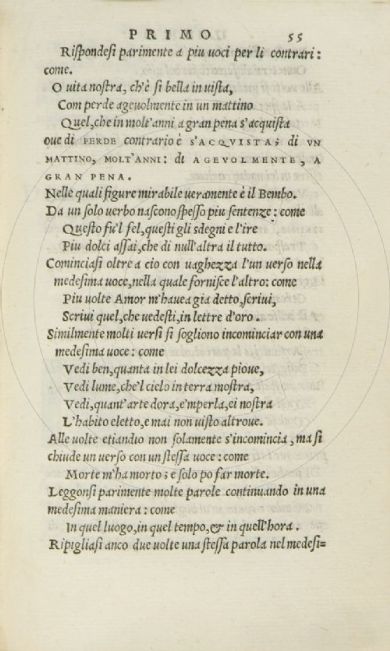 PRIMO 55
Rispondesi parimente a piu uoci per li contrari:
come.
O uita nostra, ch'è si bella in uista,
Com perde ageuolmente in un mattino
Quel, che in molt'anni a gran pena s'acquista
oue di PERDE contrario è S'ACQVISTA; di VN
MATTINO, MOLT'ANNI: di AGEVOLMENTE, A
GRAN PENA.
Nelle quali figure mirabile ueramente è il Bembo.
Da un solo uerbo nascono spesso piu sentenze: come
Questo fu'l fel, questi gli sdegni e l'ire
Piu dolci assai, che di null'altra il tutto.
Cominciasi oltre a cio con uaghezza l'un uerso nella
medesima uoce, nella quale fornisce l'altro: come
Piu uolte Amor m'hauea gia detto, scriui,
Scriui quel, che uedesti, in lettre d'oro.
Similmente molti uersi si sogliono incominciar con una
medesima uoce: come
Vedi ben, quanta in lei dolcezza pioue,
Vedi lume, che'l cielo in terra mostra,
Vedi, quant'arte dora, e'mperla, ei nostra
L'habito eletto, e mai non uisto altroue.
Alle uolte etiandio non solamente s'incomincia, ma si
chiude un uerso con un stessa uoce: come
Morte m'ha morto; e solo po far morte.
Leggonsi parimente molte parole continuando in una
medesima maniera: come
In quel luogo, in quel tempo, & in quell'hora.
Ripigliasi anco due uolte una stessa parola nel medesi=